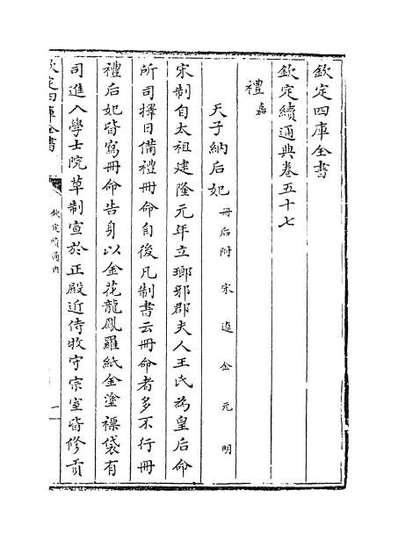 欽定四庫全書
欽定續通典卷五十七
禮嘉
天子納后妃冊后附 宋 遼 金 元 明
宋制自太祖建隆元年立瑯邪郡夫人王氏為皇后命
所司擇日備禮冊命自後凡制書云冊命者多不行冊
禮后妃皆寫冊命告身以金花龍鳳羅紙金塗褾袋有
司進入學士院草制宣於正殿近侍牧守宗室皆修貢
欽定四庫全書
欽定續通典
一